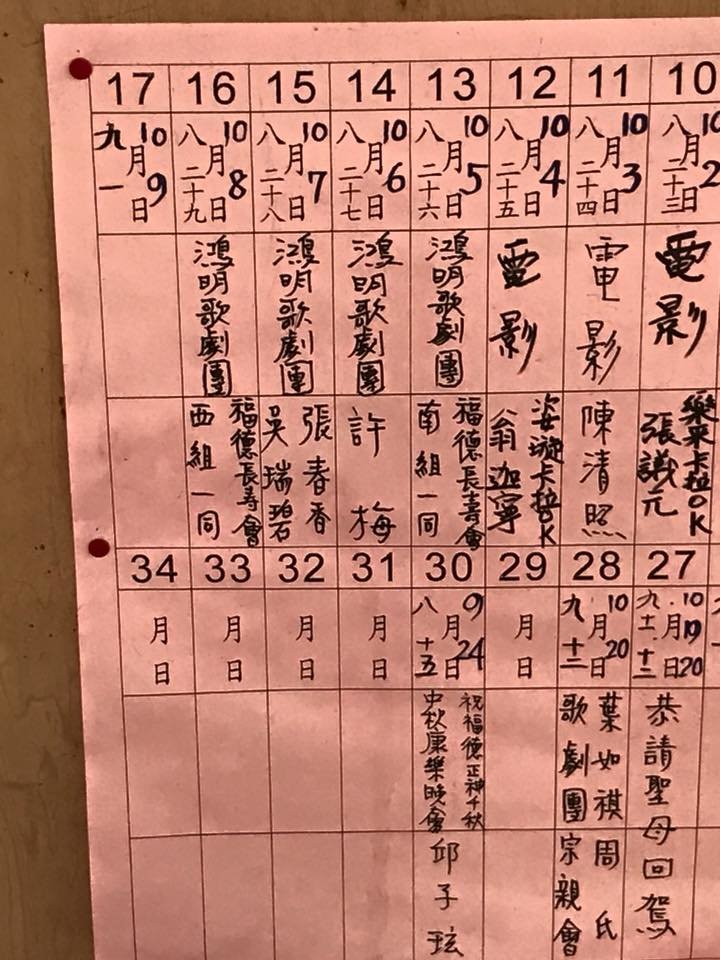 10
10月2日
八二十三
電影
樂來卡拉OK
張議元
11
10月3日
八二十四
電影
陳清照
12
10月4日
八二十五
電影
姿璇卡拉OK
翁迦寧
13
10月5日
八二十六
鴻明歌劇團
福德長壽會
南組一同
14
10月6日
八二十七
鴻明歌劇團
許梅
15
10月7日
八二十八
鴻明歌劇團
張春香
吳瑞碧
16
10月8日
八二十九
鴻明歌劇團
福德長壽會
西組一同
17
10月9日
九一
27
10月19.20日
九.十一.十二
恭請聖母回駕
28
10月20日
九十二
葉如祺
歌劇團
周氏
宗親會
29
月日
30
9月24日
八十五
祝福德正神千秋
中秋康樂晚會
邱子玹
31
月日
32
月日
33
月日
34
月日